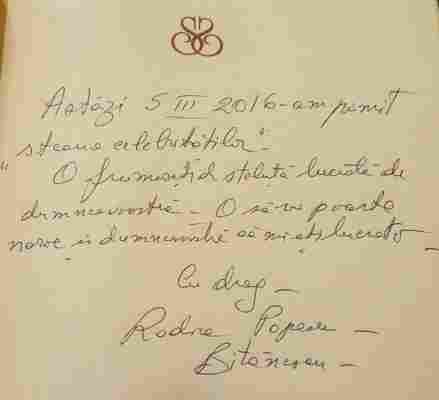 Astăzi 5 III 2016 - am primit
"steaua celebrităților".
O frumoasă steluță lucrată de
dumneavoastră - O să vă poarte
noroc și dumneavoastră că mi-ați lucrat-o
Cu drag -
Rodica Popescu -
Bitănescu -